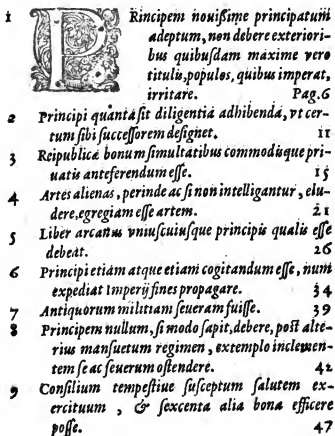 1 PRincipem nouißime principatum
adeptum, non debere exteriori-
bus quibusdam maxime vero
titulis, populos, quibus imperat,
irritare. Pag.6
2 Principi quāta sit diligentia adhibenda, vt cer-
tum sibi successorem designet. 11
3 Reipublicæ bonum simultatibus commodisque pri-
uatis anteferendum esse. 15
4 Artes alienas, perinde ac si non intelligantur, elu-
dere, egregiam esse artem. 21
5 Liber arcanus vniuscuiusque principis qualis esse
debeat. 26
6 Principi etiam atque etiam cogitandum esse, num
expediat Imperij fines propagare. 34
7 Antiquorum militiam seueram fuisse. 39
8 Principem nullum, si modo sapit, debere, post alte-
rius mansuetum regimen, extemplo inclemen-
tem se ac seuerum ostendere. 42
9 Consilium tempestiue susceptum salutem ex-
ercituum, & sexcenta alia bona efficere
posse. 47